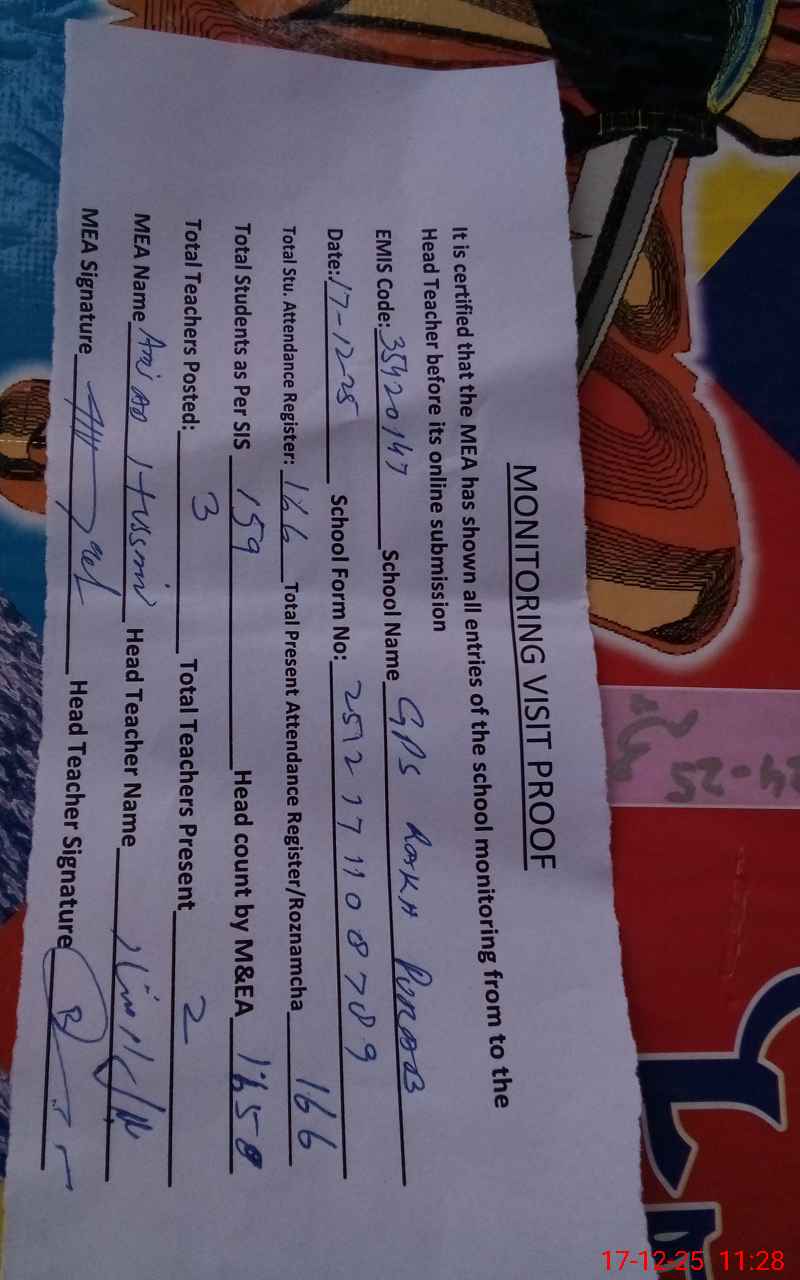 MONITORING VISIT PROOF
It is certified that the MEA has shown all entries of the school monitoring from to the
Head Teacher before its online submission
EMIS Code: 35420147 School Name GPS
Date: 17-12-25 School Form No: 2512171108789
Total Stu. Attendance Register: 166 Total Present Attendance Register/Roznamcha 166
Total Students as Per SIS 159 Head count by M&EA
Total Teachers Posted: 3 Total Teachers Present 2
MEA Name Hussain Head Teacher Name
MEA Signature Head Teacher Signature
17-12-25 11:28